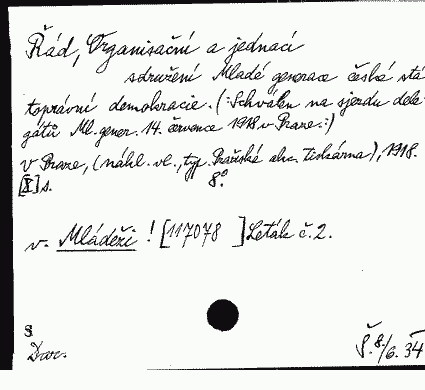 Řád, Organisační a jednací
sdružení Mladé generace české stá
toprávní demokracie. (: Schválen na sjezdu dele-
gátů Ml. gener. 14. července 1918 v Praze. :)
V Praze, (nákl. vl., typ. Pražské akc. tiskárna), 1918.
[X] s. 8°.
v. Mládeži! [117078 ] Leták č. 2.
S
Dar.
Š. 8./6. 34